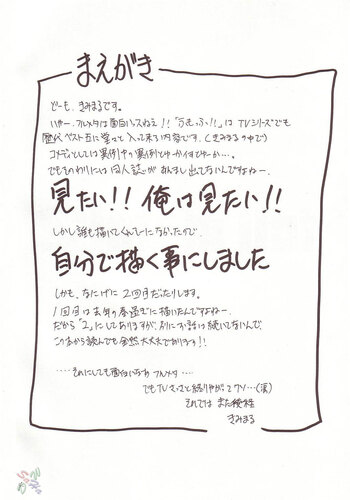 まえがき
どーも、きみまるです。
いやー、フルメタは面白いっスねえ!!「ふもっふ!!」はTVシリーズでも
歴代ベスト五に堂々と入って来る内容です。(きみまるの中で)
コメディとしては異例中の異例とゆーか何とゆーか…。
でもそのわりには同人誌があんまし出てないんですよねー。
見たい!! 俺は見たい!!
しかし誰も描いてくんそーになかったので、
自分で描く事にしました
しかも、なにげに2回目だったりします。
1回目は去年の春過ぎに描いたんですよねー。
だから「2」にしてありますが、別にお話は続いてないんで
この本から読んでも全然大丈夫であります!!
……それにしても面白いなあ フルメタ…
でもTVさっさと終りやがって クソ…(涙)
それでは また後程
きみまる